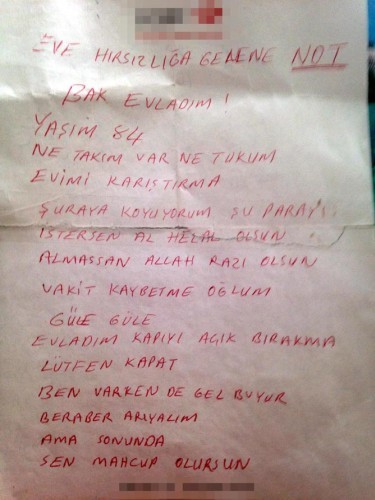 EVE HIRSIZLIĞA GELENE NOT
BAK EVLADIM!
YAŞIM 84
NE TAKIM VAR NE TUKUM
EVIMI KARIŞTIRMA
ŞURAYA KOYUYORUM ŞU PARAYI
İSTERSEN AL HELAL OLSUN
ALMASSAN ALLAH RAZI OLSUN
VAKIT KAYBETME OĞLUM
GÜLE GÜLE
EVLADIM KAPIYI AÇIK BIRAKMA
LÜTFEN KAPAT
BEN VARKEN DE GEL BUYUR
BERABER ARIYALIM
AMA SONUNDA
SEN MAHCUP OLURSUN